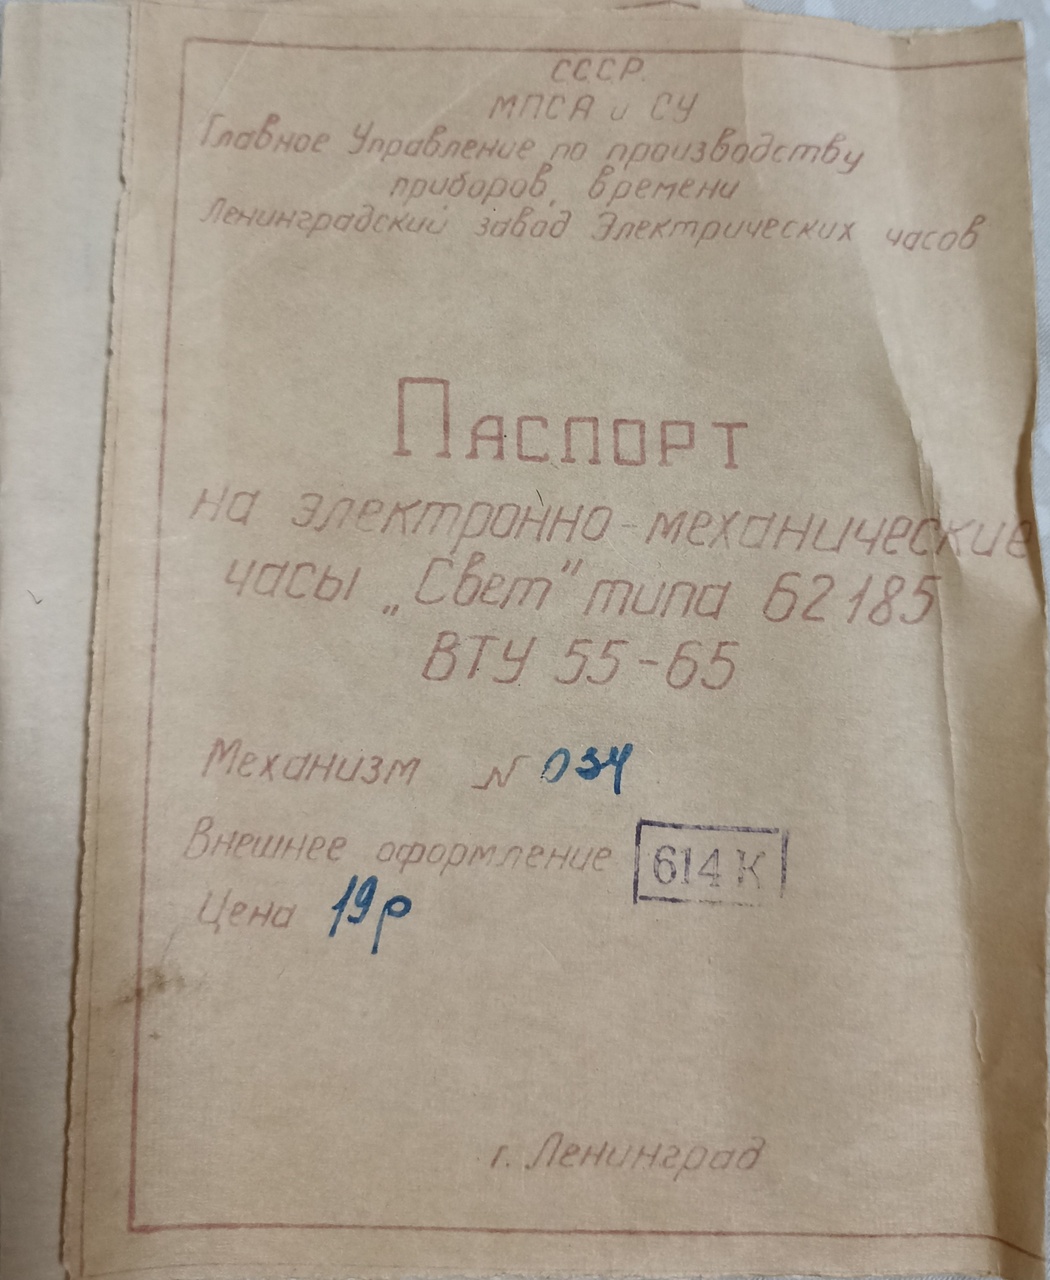 СССР.
МПСА и СУ
Главное Управление по производству
приборов, времени
Ленинградский завод Электрических часов
Паспорт
на электронно-механические
часы „Свет" типа 62185
ВТУ 55-65
Механизм № 034
Внешнее оформление 614 К
Цена 19р
г. Ленинград